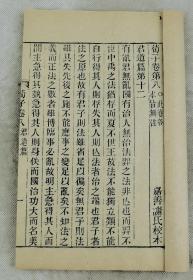 荀子卷第八 此卷舊無注
嘉善謝氏校本
君道篇第十二
有亂君無亂國有治人無治法羿之法非亡也而羿不
世中禹之法猶存而夏不世王故法不能獨立類不能自
行得其人則存失其人則亡法者治之端也君子者
法之原也故有君子則法雖省足以徧矣無君子則法
雖具失先後之施不能應事之變足以亂矣不知法之
義而正法之數者雖博臨事必亂故明主急得其人而
闇主急得其埶急得其人則身佚而國治功大而名美
荀子卷八 君道篇